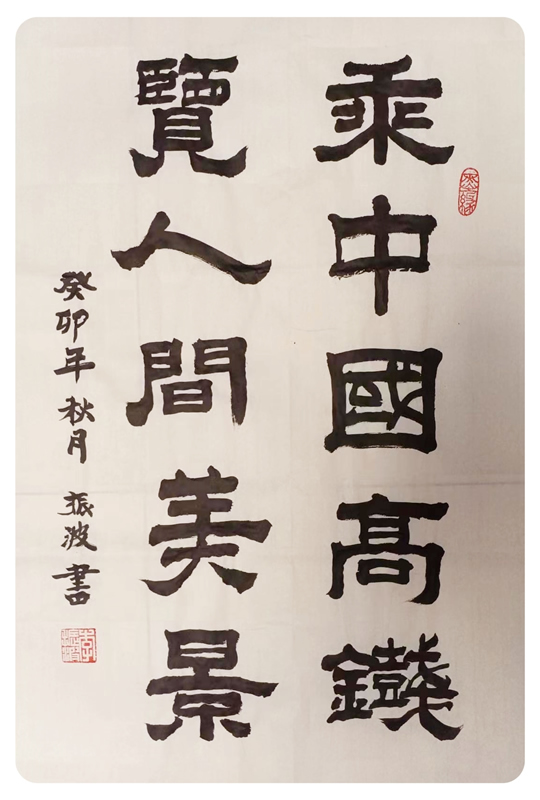 乘中國高鐵
覽人間美景
癸卯年秋月 振波書